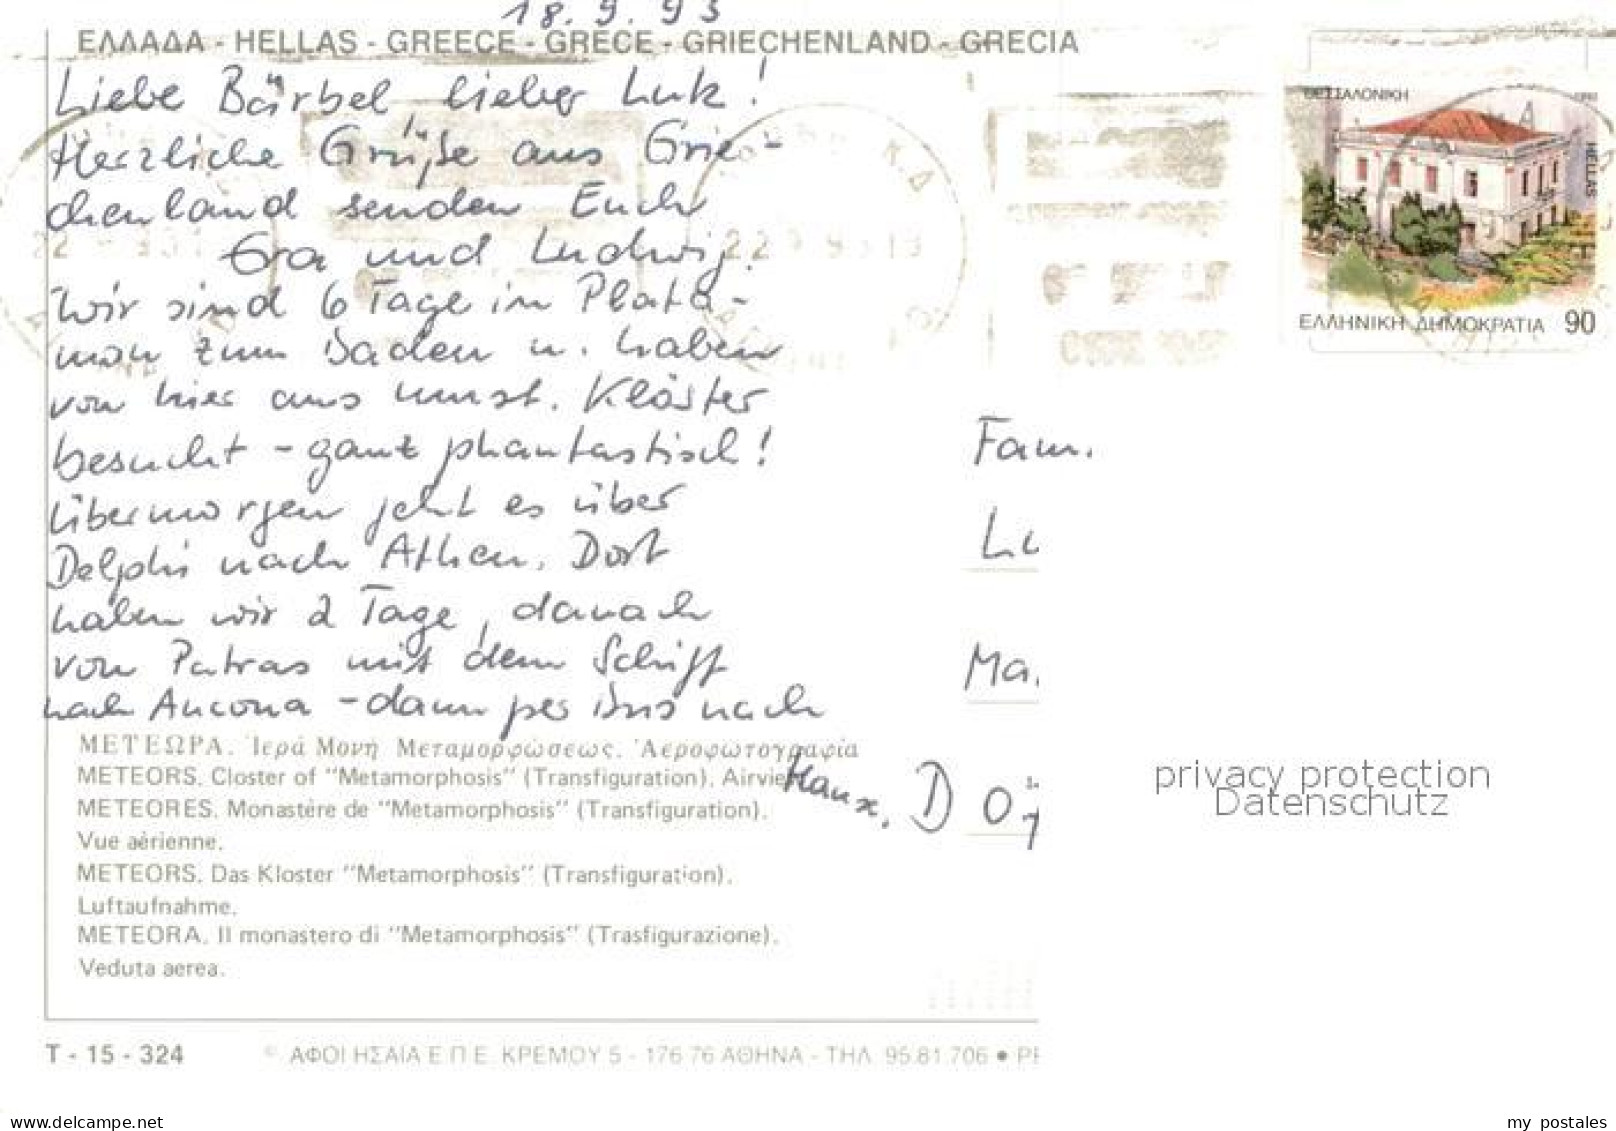 18.9.93
ΕΛΛΑΔΑ - HELLAS - GREECE - GRÈCE - GRIECHENLAND - GRECIA
Liebe Bärbel lieber Luk!
Herzliche Grüße aus Grie-
chenland senden Euch
Eva und Ludwig.
Wir sind 6 Tage in Plata-
mon zum Baden u. haben
von hier aus die Klöster
besucht - ganz phantastisch!
Übermorgen geht es über
Delphi nach Athen. Dort
haben wir 2 Tage, danach
von Patras mit dem Schiff
nach Ancona - dann per Bus nach
Hause.
ΘΕΣΣΑΛΟΝΙΚΗ
HELLAS
ΕΛΛΗΝΙΚΗ ΔΗΜΟΚΡΑΤΙΑ 90
Fam.
Lu
Ma.
D 07
ΜΕΤΕΩΡΑ. Ἱερά Μονή Μεταμορφώσεως. Ἀεροφωτογραφία
METEORS. Closter of "Metamorphosis" (Transfiguration). Airview
METEORES. Monastère de "Metamorphosis" (Transfiguration).
Vue aérienne.
METEORS. Das Kloster "Metamorphosis" (Transfiguration).
Luftaufnahme.
METEORA. Il monastero di "Metamorphosis" (Trasfigurazione).
Veduta aerea.
T - 15 - 324
© ΑΦΟΙ ΗΣΑΪΑ Ε.Π.Ε. ΚΡΕΜΟΥ 5 - 176 76 ΑΘΗΝΑ - ΤΗΛ. 95.81.706 ●
privacy protection
Datenschutz
www.delcampe.net
my_postales